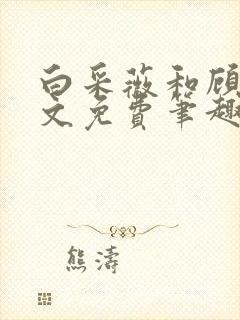 白采薇和顾
文免费笔趣
熊涛